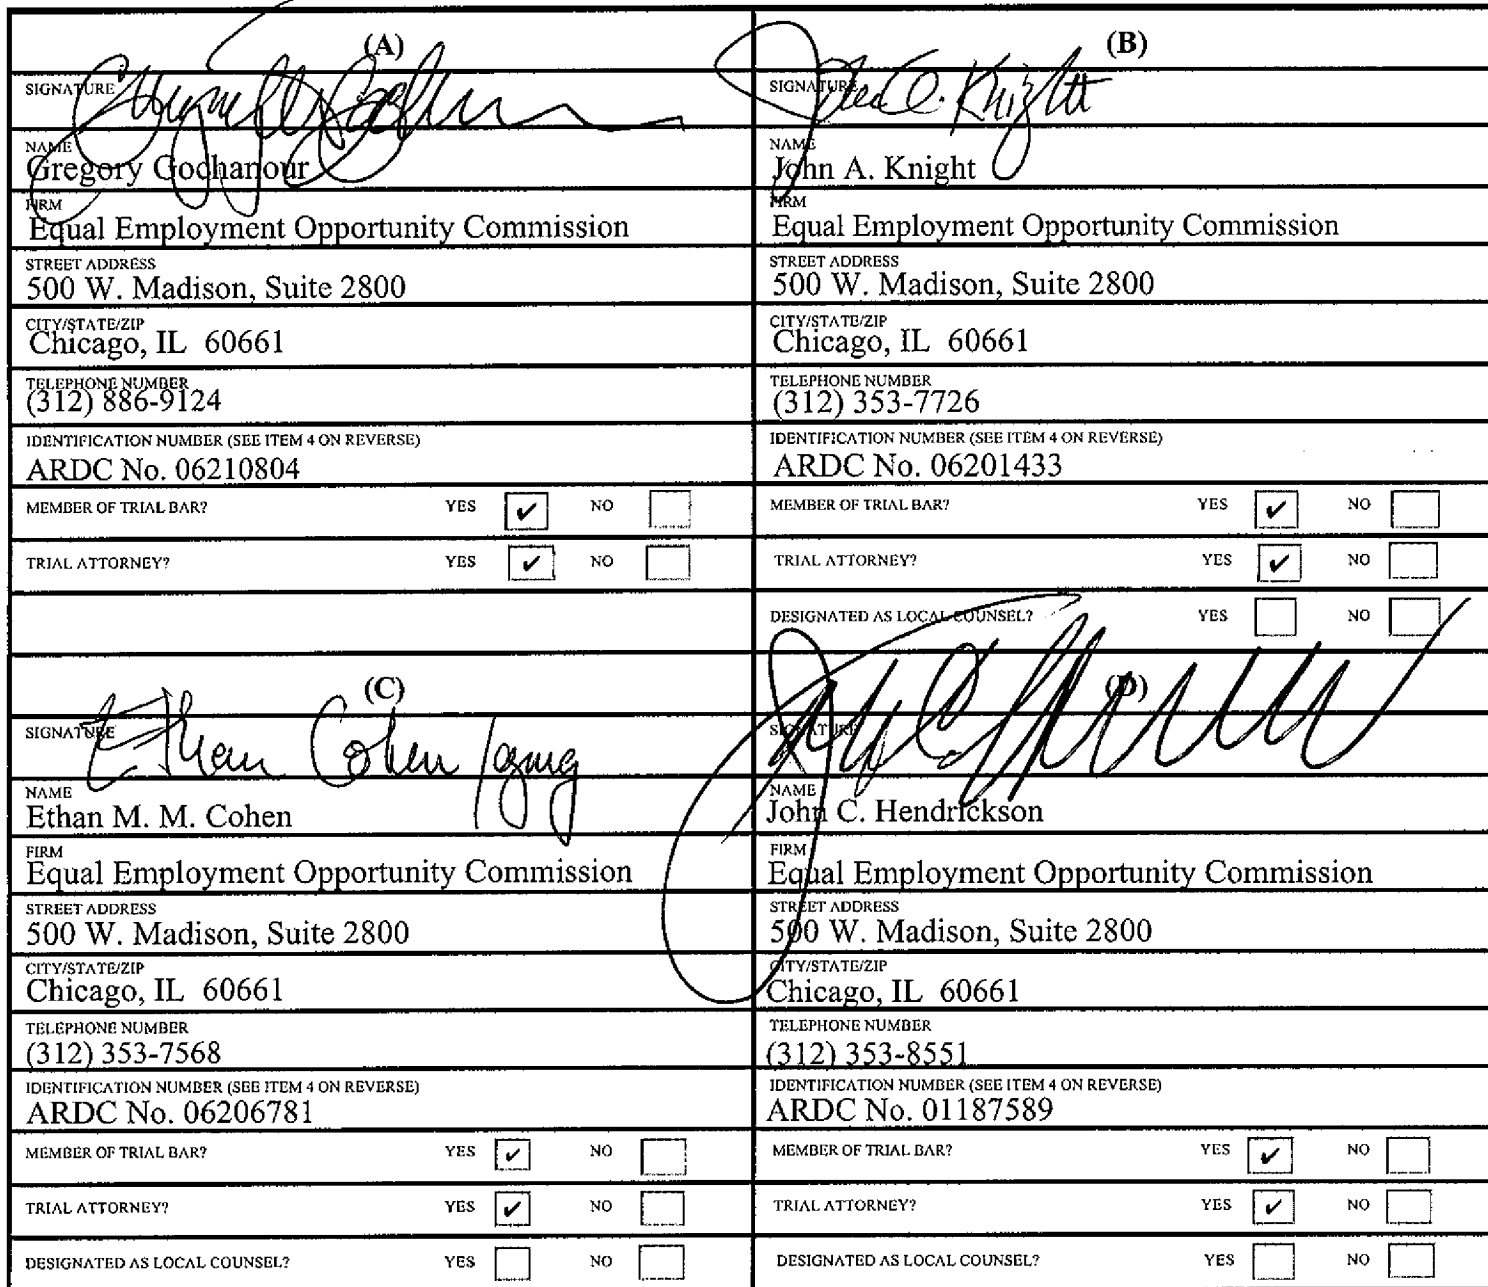 (A)
SIGNATURE
NAME
Gregory Gochanour
FIRM
Equal Employment Opportunity Commission
STREET ADDRESS
500 W. Madison, Suite 2800
CITY/STATE/ZIP
Chicago, IL 60661
TELEPHONE NUMBER
(312) 886-9124
IDENTIFICATION NUMBER (SEE ITEM 4 ON REVERSE)
ARDC No. 06210804
MEMBER OF TRIAL BAR? YES ✔ NO
TRIAL ATTORNEY? YES ✔ NO
(B)
SIGNATURE John A. Knight
NAME
John A. Knight
FIRM
Equal Employment Opportunity Commission
STREET ADDRESS
500 W. Madison, Suite 2800
CITY/STATE/ZIP
Chicago, IL 60661
TELEPHONE NUMBER
(312) 353-7726
IDENTIFICATION NUMBER (SEE ITEM 4 ON REVERSE)
ARDC No. 06201433
MEMBER OF TRIAL BAR? YES ✔ NO
TRIAL ATTORNEY? YES ✔ NO
DESIGNATED AS LOCAL COUNSEL? YES NO
(C)
SIGNATURE Ethan Cohen
NAME
Ethan M. M. Cohen
FIRM
Equal Employment Opportunity Commission
STREET ADDRESS
500 W. Madison, Suite 2800
CITY/STATE/ZIP
Chicago, IL 60661
TELEPHONE NUMBER
(312) 353-7568
IDENTIFICATION NUMBER (SEE ITEM 4 ON REVERSE)
ARDC No. 06206781
MEMBER OF TRIAL BAR? YES ✔ NO
TRIAL ATTORNEY? YES ✔ NO
DESIGNATED AS LOCAL COUNSEL? YES NO
(D)
SIGNATURE
NAME
John C. Hendrickson
FIRM
Equal Employment Opportunity Commission
STREET ADDRESS
500 W. Madison, Suite 2800
CITY/STATE/ZIP
Chicago, IL 60661
TELEPHONE NUMBER
(312) 353-8551
IDENTIFICATION NUMBER (SEE ITEM 4 ON REVERSE)
ARDC No. 01187589
MEMBER OF TRIAL BAR? YES ✔ NO
TRIAL ATTORNEY? YES ✔ NO
DESIGNATED AS LOCAL COUNSEL? YES NO